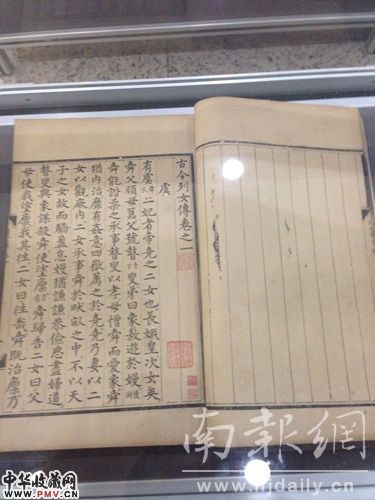 古今列女傳卷之一
虞
有虞二妃者帝堯之二女也長娥皇次女英
舜父頑母嚚父號瞽叟弟曰象敖遊於嫚
舜能諧柔之承事瞽叟以孝母憎舜而愛象舜
猶內治靡有姦意四嶽薦之於堯堯乃妻以二
女以觀厥內二女承事舜於畎畝之中不以天
子之女故而驕盈怠嫚猶謙謙恭儉思盡婦道
瞽叟與象謀殺舜使塗廩舜歸告二女曰父
母使我塗廩我其往二女曰往哉舜既治廩乃
南報網
www.njdaily.cn
中华收藏网
www.PMV.cn